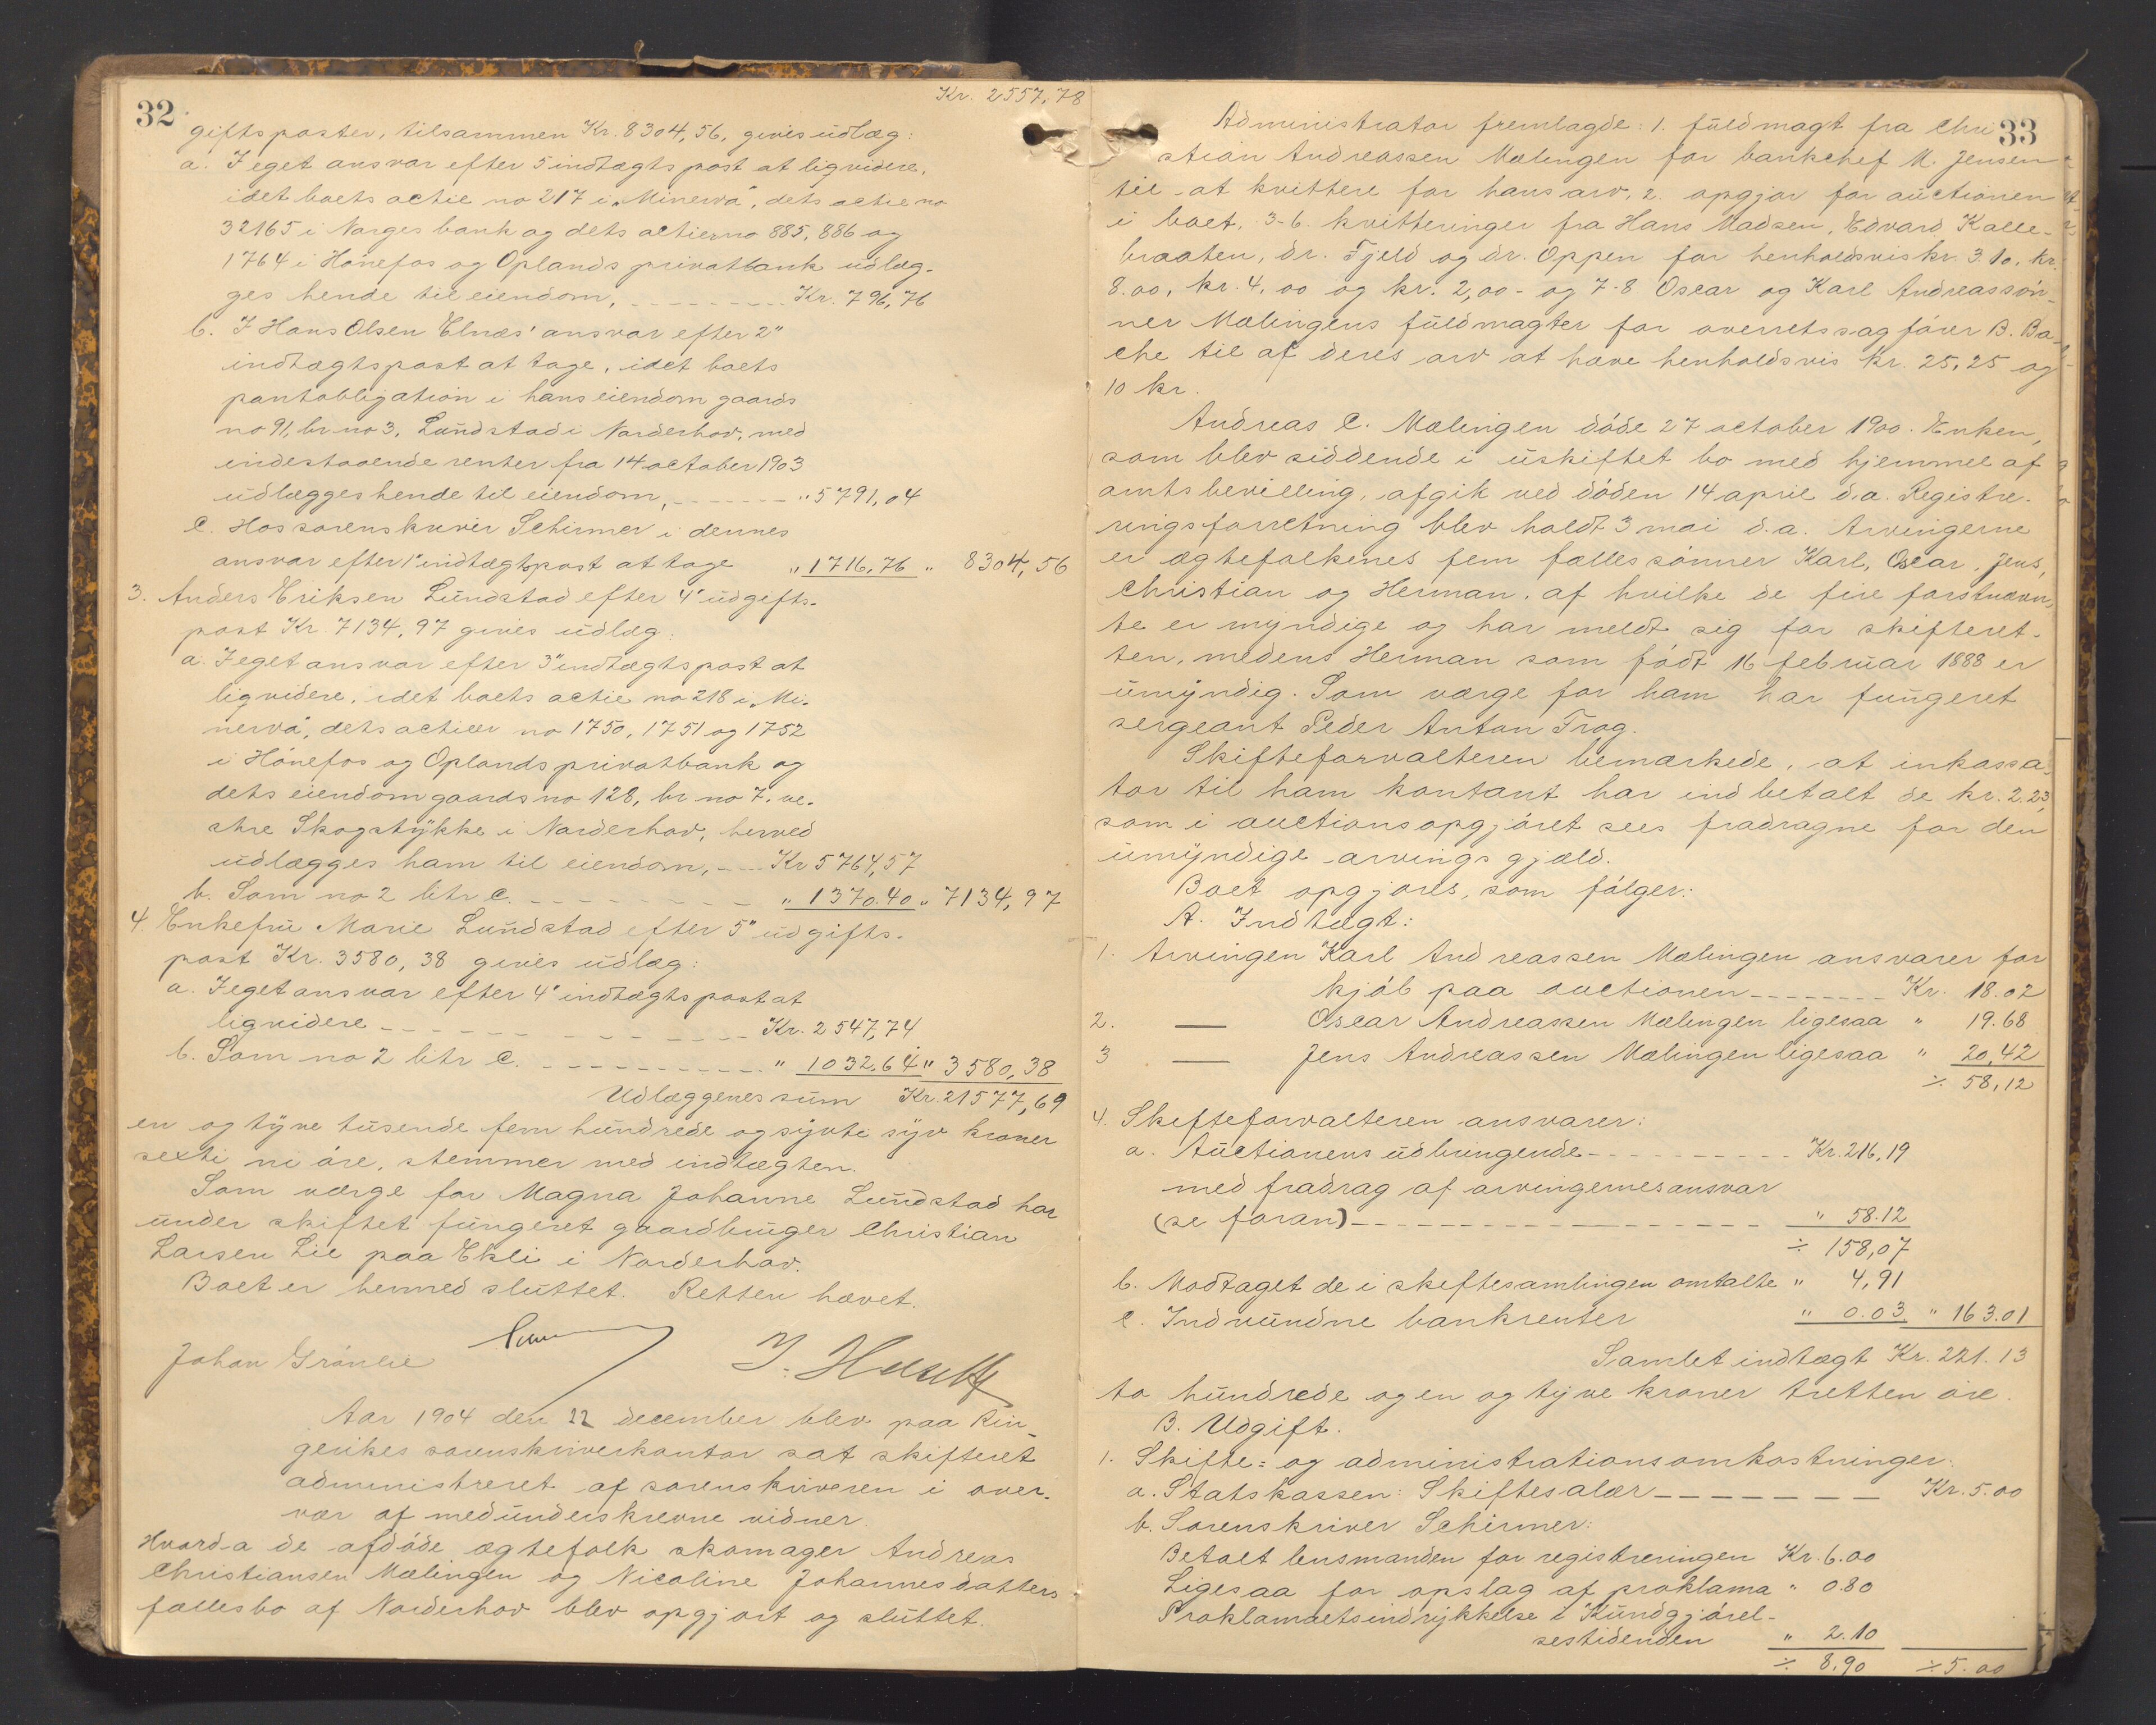 32
Kr. 2557,78
giftsposter, tilsammen Kr. 8304,56, gives udlæg:
a. I eget ansvar efter 5 indtægtspost at ligvidere,
idet boets actie no 217 i „Minerva", dets actie no
32165 i Norges bank og dets actier no 885, 886 og
1764 i Hønefos og Oplands privatbank udlæg-
ges hende til eiendom, Kr. 796,76
b. I Hans Olsen Elnæs' ansvar efter 2"
indtægtspost at tage, idet boets
pantobligation i hans eiendom gaards
no 91, br no 3, Lundstad i Norderhov, med
indestaaende renter fra 14 october 1903
udlægges hende til eiendom, " 5791,04
c. Hos sorenskriver Schirmer i dennes
ansvar efter 1" indtægtspost at tage " 1716,76 " 8304,56
3. Anders Eriksen Lundstad efter 4" udgifts-
post Kr. 7134,97 gives udlæg:
a. I eget ansvar efter 3" indtægtspost at
ligvidere, idet boets actie no 218 i „Mi-
nerva", dets actier no 1750, 1751 og 1752
i Hønefos og Oplands privatbank og
dets eiendom gaards no 128, br no 7, ve-
stre Skogstykke i Norderhov, herved
udlægges ham til eiendom, Kr 5764,57
b. Som no 2 litr c. " 1370.40 " 7134,97
4. Enkefru Marie Lundstad efter 5" udgifts-
post Kr. 3580,38 gives udlæg:
a. I eget ansvar efter 4" indtægtspost at
ligvidere Kr. 2547,74
b. Som no 2 litr c. " 1032.64 " 3580,38
Udlæggenes sum Kr. 21577,69
en og tyve tusende fem hundrede og sytti syv kroner
sexti ni øre, stemmer med indtægten.
Som værge for Magna Johanne Lundstad har
under skiftet fungeret gaardbruger Christian
Larsen Lie paa Ekli i Norderhov.
Boet er hermed sluttet. Retten hævet.
Johan Grønlie
Aar 1904 den 22 december blev paa Rin-
gerikes sorenskriverkontor sat skifteret
administreret af sorenskriveren i over-
vær af medunderskrevne vidner.
Hvorda de afdøde ægtefolk skomager Andreas
Christiansen Mælingen og Nicoline Johannesdatters
fællesbo af Norderhov blev opgjort og sluttet.
33
Administrator fremlagde: 1. fuldmagt fra Chri
stian Andreassen Mælingen for bankchef M. Jensen
til at kvittere for hans arv, 2. opgjør for auctionen
i boet, 3-6. kvitteringer fra Hans Madsen, Edvard Kalle-
braaten, dr. Fjeld og dr. Oppen for henholdsvis kr. 3.10, kr.
8.00, kr. 4,00 og kr. 2,00 - og 7-8 Oscar og Karl Andreassøn-
ner Mælingens fuldmagter for overretssagfører B. Ba-
che til af deres arv at hæve henholdsvis kr. 25,25 og
10 kr.
Andreas C. Mælingen døde 27 october 1900. Enken,
som blev siddende i uskiftet bo med hjemmel af
amtsbevilling, afgik ved døden 14 april d.a. Registre-
ringsforretning blev holdt 3 mai d.a. Arvingerne
er ægtefolkenes fem fælles sønner Karl, Oscar, Jens,
Christian og Herman, af hvilke de fire førstnævn-
te er myndige og har meldt sig for skifteret-
ten, medens Herman som født 16 februar 1888 er
umyndig. Som værge for ham har fungeret
sergeant Peder Anton Frog.
Skifteforvalteren bemærkede, at inkassa-
tor til ham kontant har indbetalt de kr. 2.23,
som i auctionsopgjøret sees fradragne for den
umyndige arvings gjæld.
Boet opgjøres, som følger:
A. Indtægt:
1. Arvingen Karl Andreassen Mælingen ansvarer for
kjøb paa auctionen Kr. 18.02
2. — Oscar Andreassen Mælingen ligesaa " 19.68
3 — Jens Andreassen Mælingen ligesaa " 20,42
÷ 58,12
4. Skifteforvalteren ansvarer:
a. Auctionens udbringende Kr. 216,19
med fradrag af arvingernes ansvar
(se foran) " 58.12
÷ 158,07
b. Modtaget de i skiftesamlingen omtalte " 4,91
c. Indvundne bankrenter " 0.03 " 163.01
Samlet indtægt Kr. 221.13
to hundrede og en og tyve kroner tretten øre.
B. Udgift.
1. Skifte= og administrationsomkostninger:
a. Statskassen: Skiftesalær Kr. 5.00
b. Sorenskriver Schirmer:
Betalt lensmanden for registreringen Kr. 6.00
Ligesaa for opslag af proklama " 0.80
Proklamaets indrykkelse i Kundgjørel-
sestidenden " 2.10
÷ 8,90 ÷ 5.00